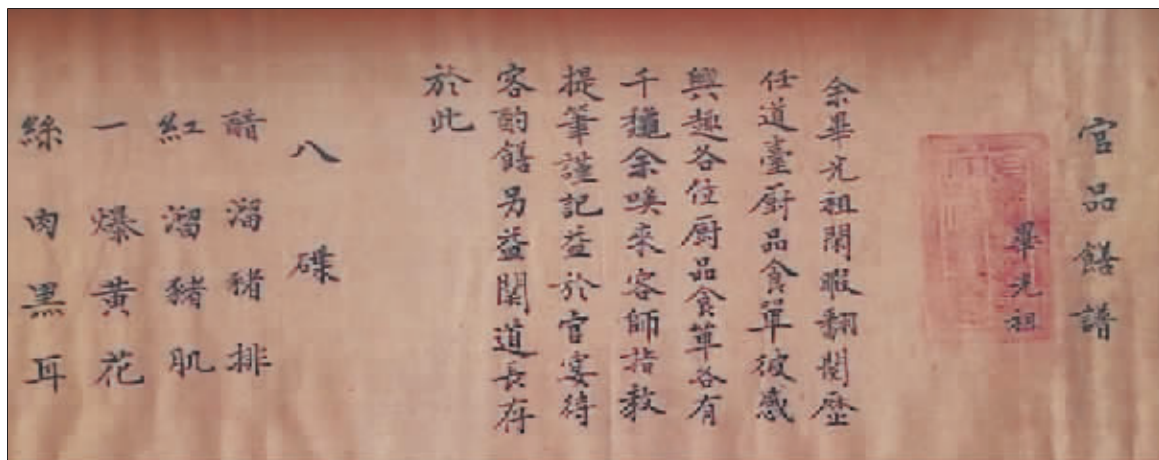 官品饍譜
畢光祖
余畢光祖閑暇翻閱歷
任道臺廚品食單彼感
興趣各位廚品食單各有
千穐余喚來容師指教
提筆謹記益於官宴待
客酌饍另益閱道長存
於此
八碟
醋溜豬排
紅溜豬肌
一爆黃花
絲肉黑耳